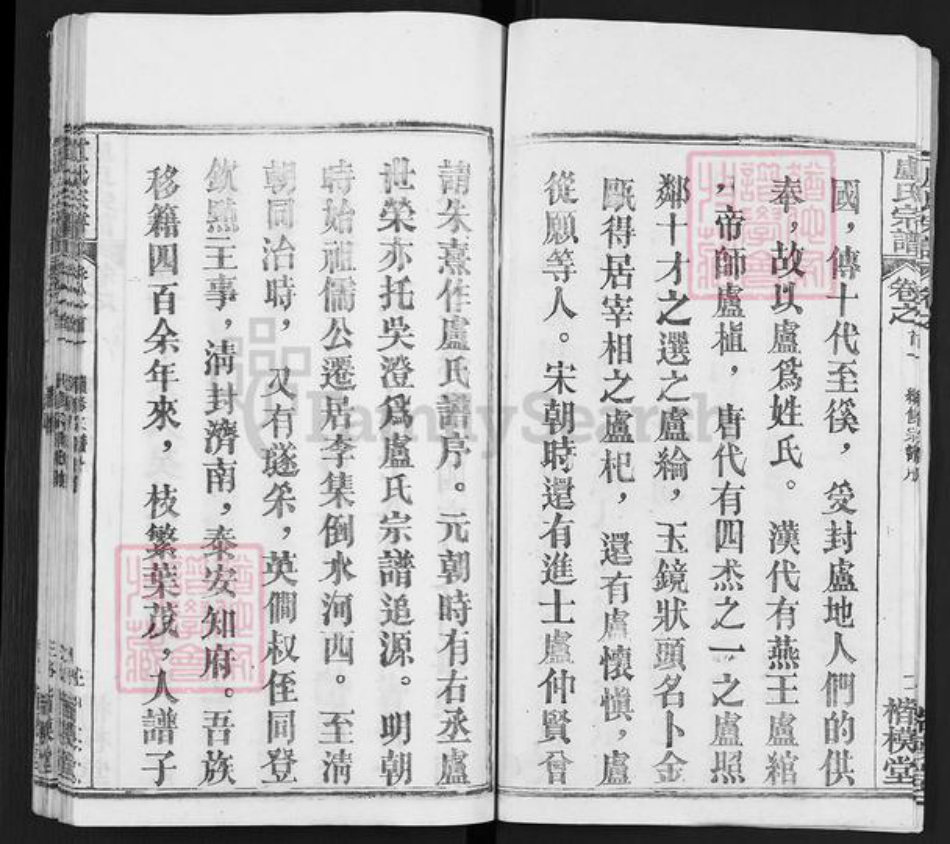 盧氏宗譜 卷之首一 續修宗譜序 二 楷模堂
國，傳十代至徯，受封盧地人們的供
奉，故以盧爲姓氏。漢代有燕王盧綰
，帝師盧植，唐代有四杰之一之盧照
鄰十才之選之盧綸，玉鏡狀頭名卜金
甌得居宰相之盧杞，還有盧懷慎，盧
從愿等人。宋朝時還有進士盧仲賢曾
請朱熹作盧氏譜序。元朝時有右丞盧
世榮亦托吳澄爲盧氏宗譜追源。明朝
時始祖儒公遷居李集倒水河西。至清
朝同治時，又有璲采，英僩叔侄同登
欽點主事，清封濟南，泰安知府。吾族
移籍四百余年來，枝繁葉茂，人譜子
FamilySearch